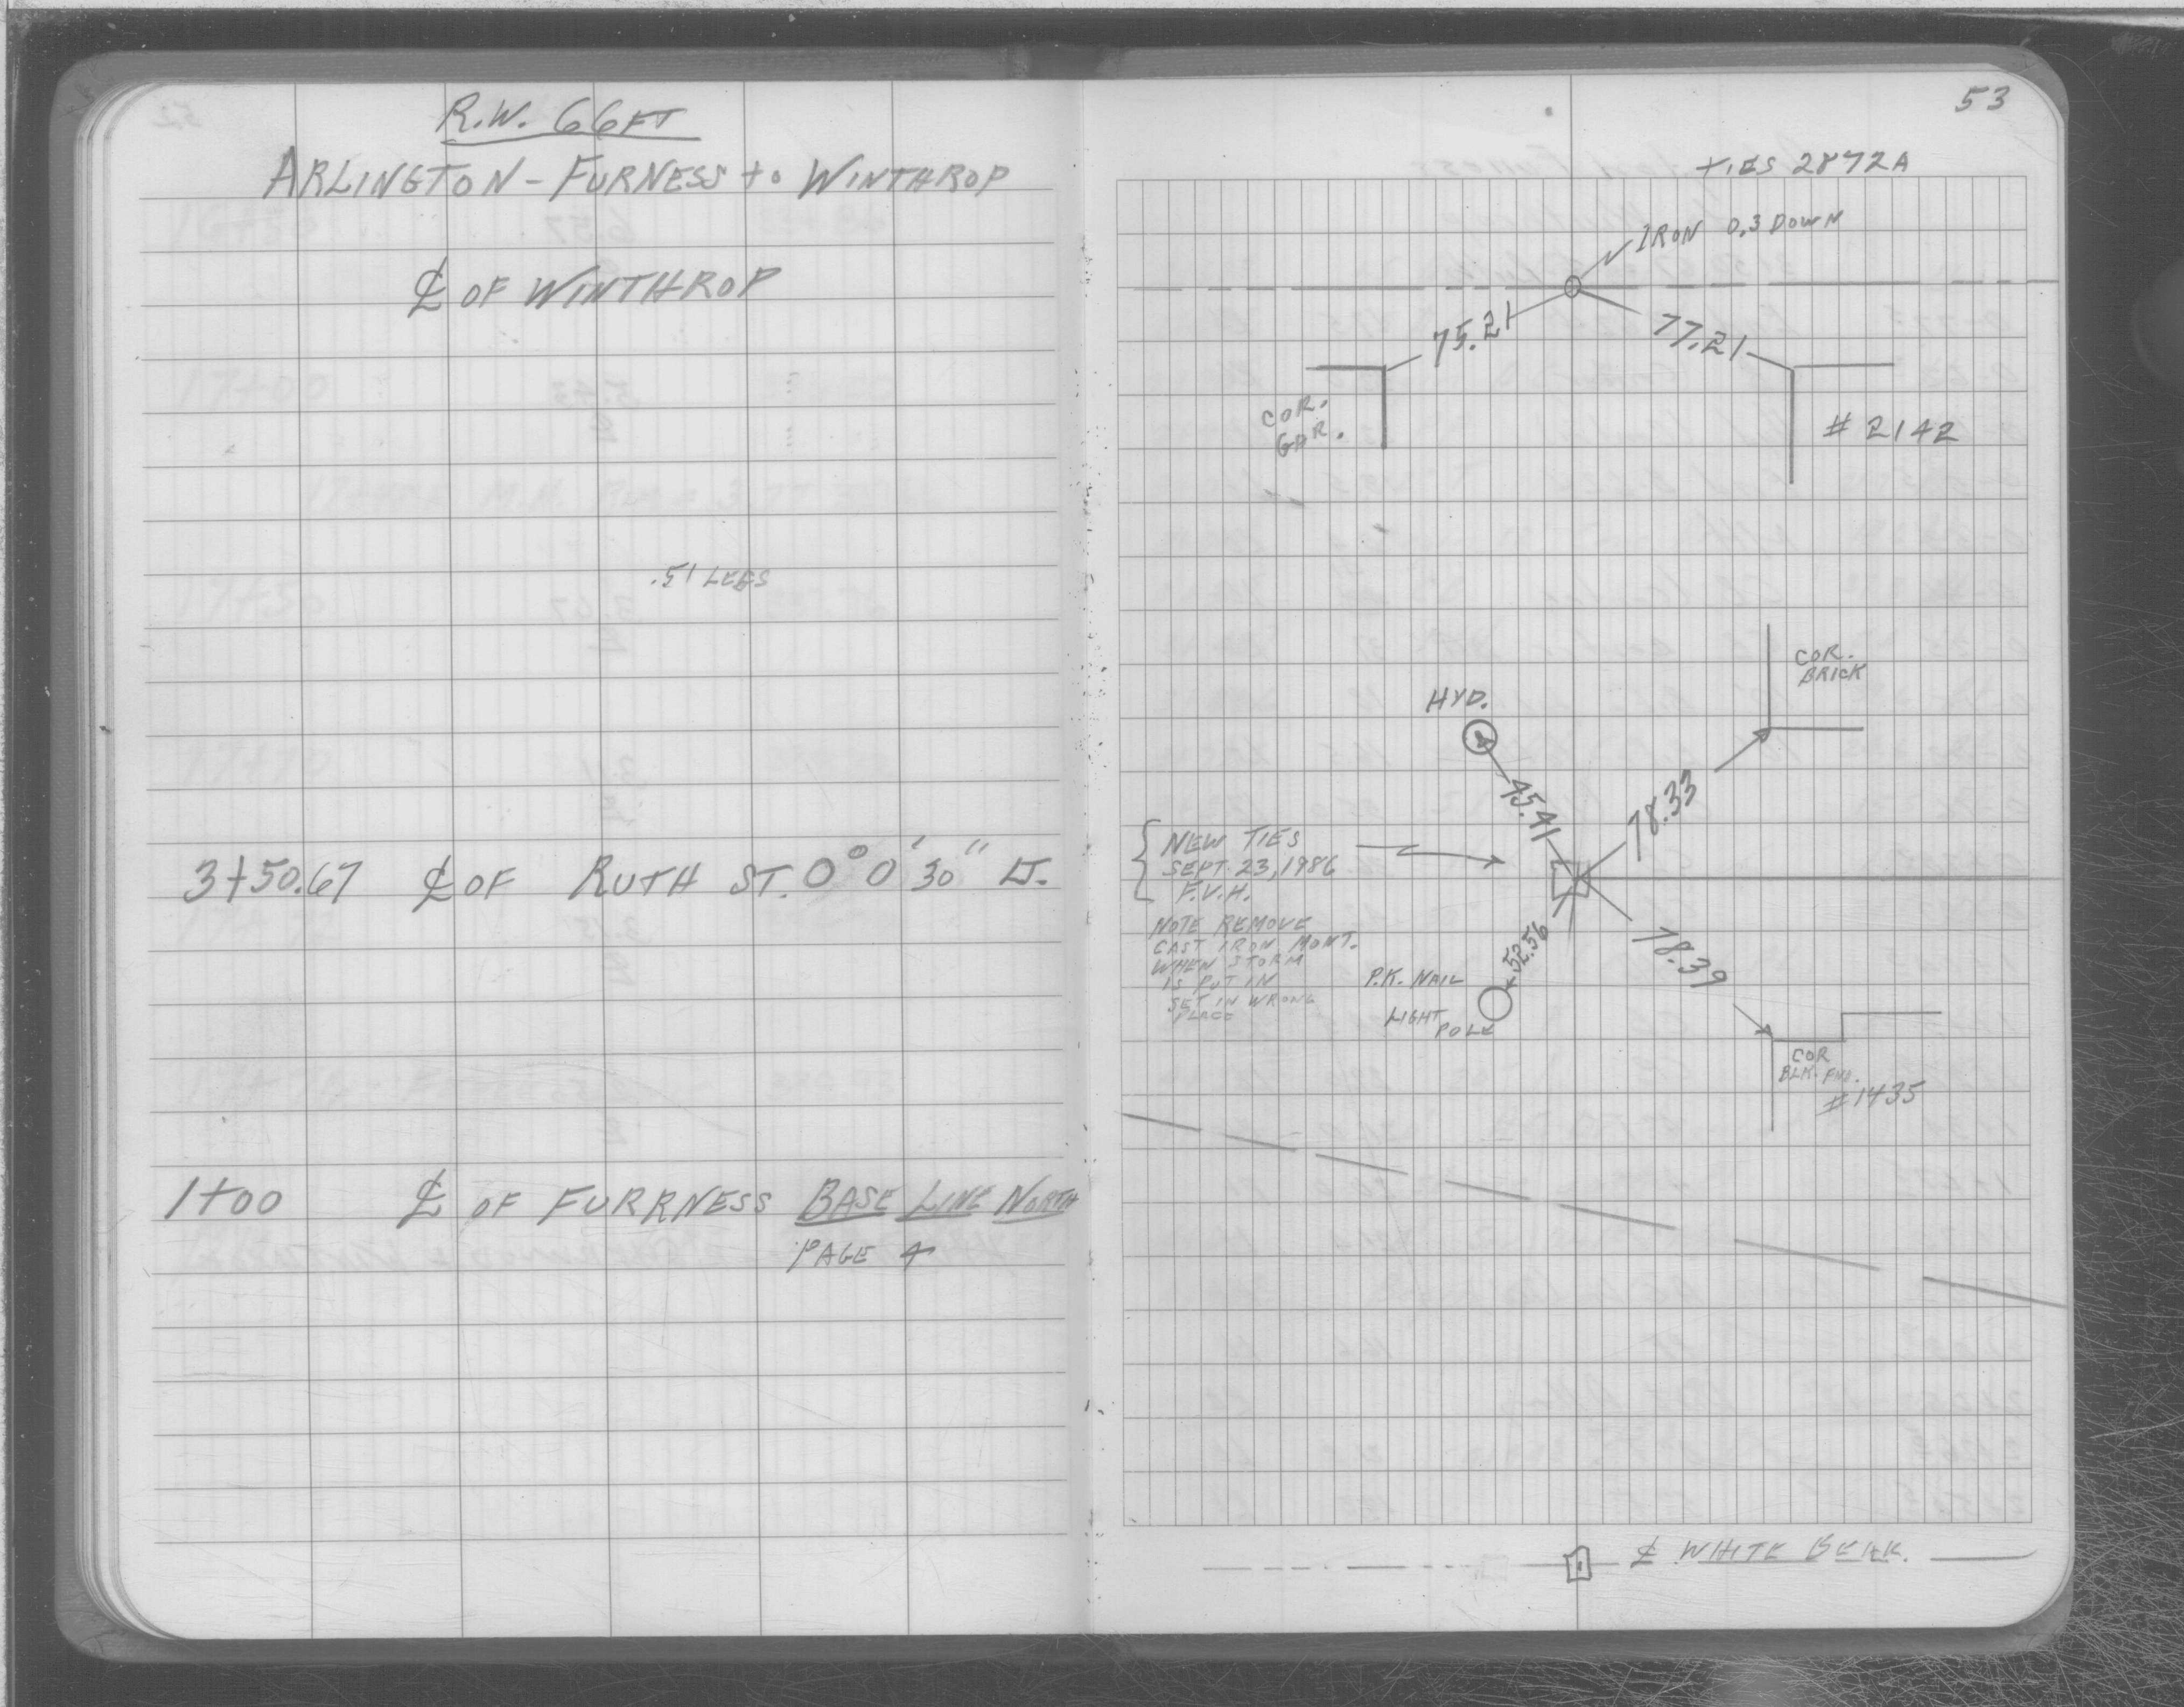 R.W. 66FT
ARLINGTON - FURNESS to WINTHROP
℄ OF WINTHROP
.51 LESS
3+50.67 ℄ OF RUTH ST. 0° 0' 30" LT.
1+00 ℄ OF FURRNESS BASE LINE NORTH
PAGE 4
53
TIES 2872A
IRON 0.3 DOWN
75.21
77.21
COR.
GAR.
# 2142
COR.
BRICK
HYD.
45.41
78.33
NEW TIES
SEPT 23, 1986
F.V.H.
NOTE REMOVE
CAST IRON MONT.
WHEN STORM
IS PUT IN
SET IN WRONG
PLACE
52.56
78.39
P.K. NAIL
LIGHT
POLE
COR
BLK. FND.
#1435
℄ WHITE BEAR